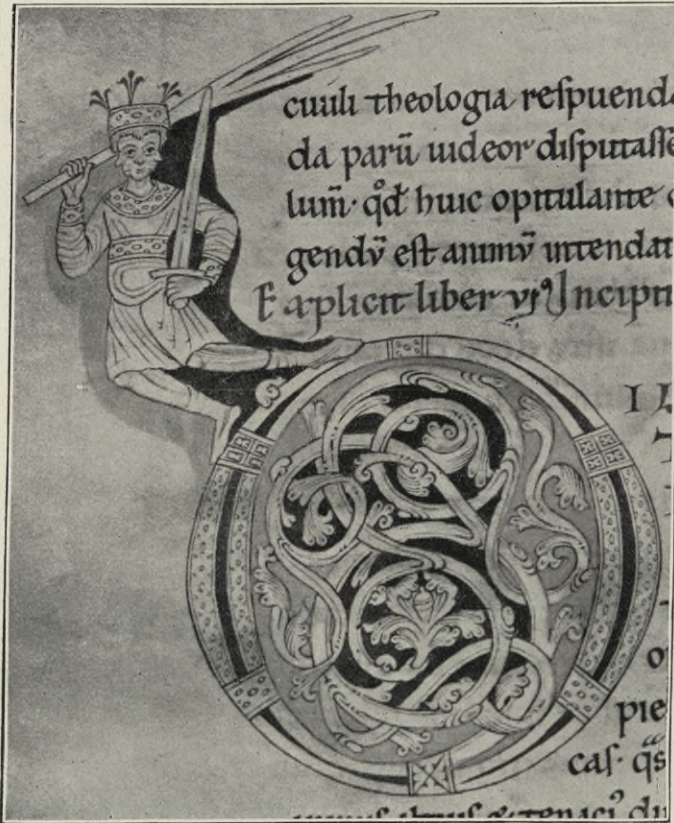 cuuili theologia reſpuend
da parū iudeor diſputaſſe
lum̄· qđ huic opitulante
gendū eſt animū intendat
Explicit liber vi Incipit
I
o
pie
caſ· q̄s